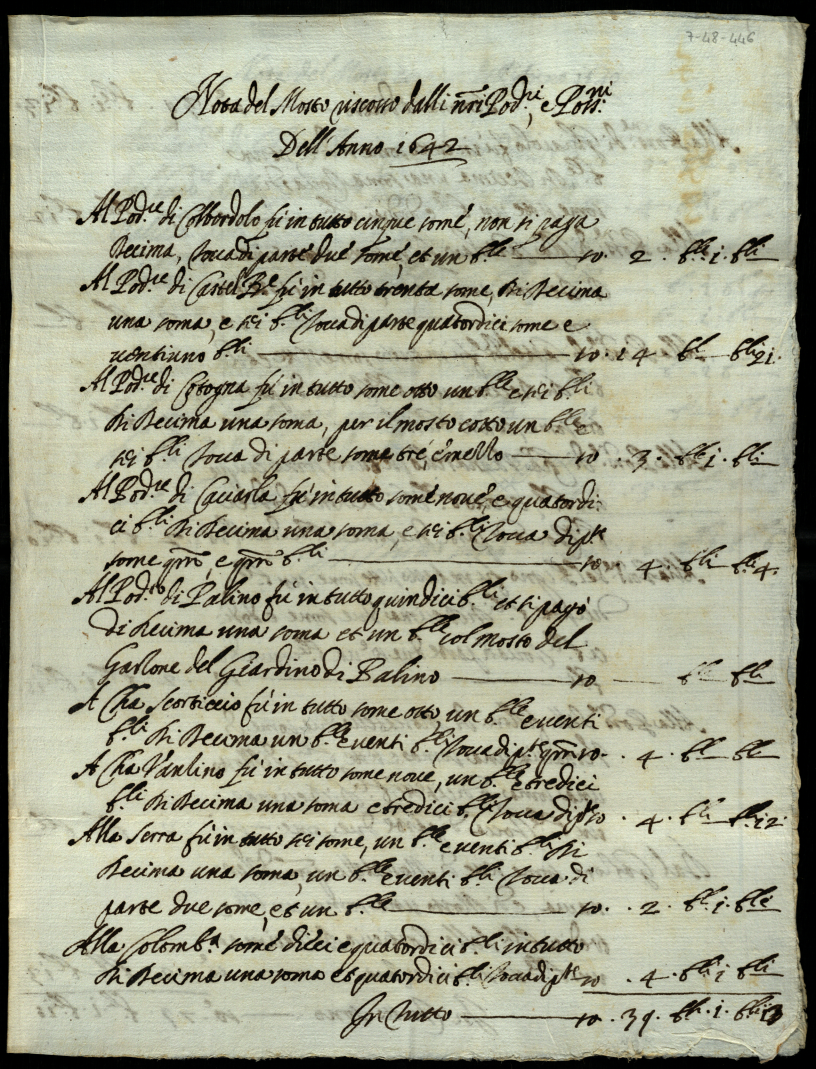 7-48-446
Nota del Mosto riscosso dalli nr̃i Pod.ri, e Poss.ni
Dell'Anno 1642
Al Pod.re di Colbordolo fù in tutto cinque some, non si paga
Decima, tocca di parte due some, et un b.le — so. 2. b.le 1. b.li —
Al Pod.re di Castel B.e fù in tutto trenta some, di Decima
una soma, e sei b.li tocca di parte quatordici some e
ventiuno b.li — so. 14 b.le — b.li 21.
Al Pod.re di Cotogna fù in tutto some otto un b.le e sei b.li
di Decima una soma, per il mosto cotto un b.le e
sei b.li tocca di parte some tré, e mezzo — so. 3. b.le 1. b.li —
Al Pod.re di Caciarla fù in tutto some nove, e quatordi-
ci b.li di Decima una soma, e sei b.li tocca di pte
some qttro, e qttro b.li — so. 4. b.li b.li 4.
Al Pod.re di Palino fù in tutto quindici b.li et si pagò
di Decima una soma et un b.le col mosto del
Garzone del Giardino di Palino — so — b.le b.li
A Cha Scorticcio fù in tutto some otto, un b.le e venti
b.li di Decima un b.le e venti b.li tocca di pte qttro so. 4. b.le — b.li
A Cha Vanlino fù in tutto some nove, un b.le e tredici
b.li di Decima una soma e tredici b.li tocca di pte so. 4. b.li — b.li 12.
Alla Serra fù in tutto sei some, un b.le e venti b.li di
Decima una soma, un b.le e venti b.li tocca di
parte due some, et un b.le — so. 2. b.li 1. b.li
Alla Colomb.a some dieci e quatordici b.li in tutto
di Decima una soma et quatordici b.li tocca di pte so 4. b.li 1 b.li
In tutto — so. 39. b.li 1. b.li 13